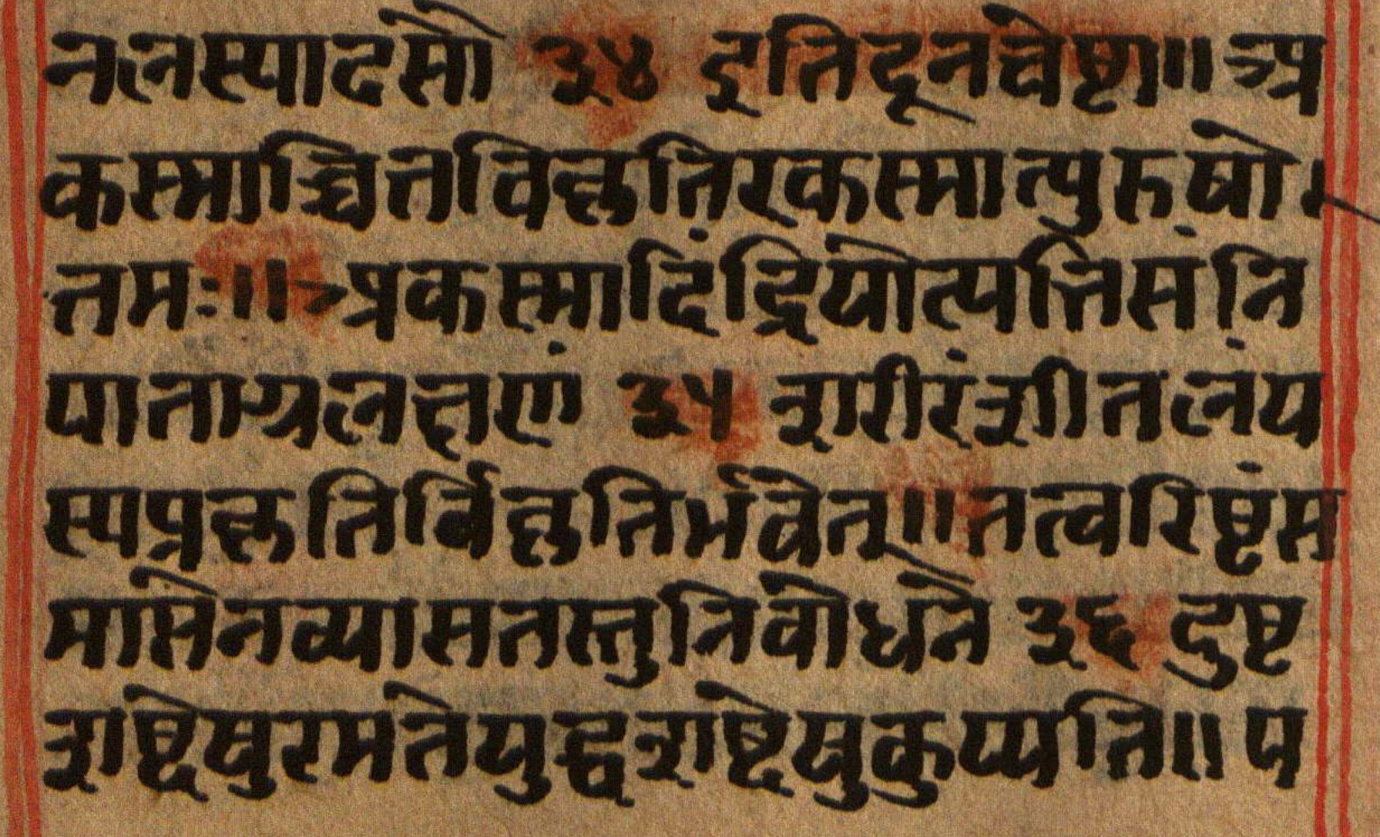 नलस्यादसौ ३४ इतिदूनचेष्टा॥ अ
कस्माच्चित्तविकृतिरकस्मात्पुरुषो
त्तमः॥ अकस्मादिंद्रियोत्पत्तिसंनि
पाताग्रलक्षणं ३५ शरीरंशीतलंय
स्यप्रकृतिर्विकृतिर्भवेत्॥तत्वरिष्टंस
मासेनव्यासतस्तुनिबोधने ३६ दुष्ट
शब्देषुरमतेयुद्धशब्देषुकुप्यति॥ य